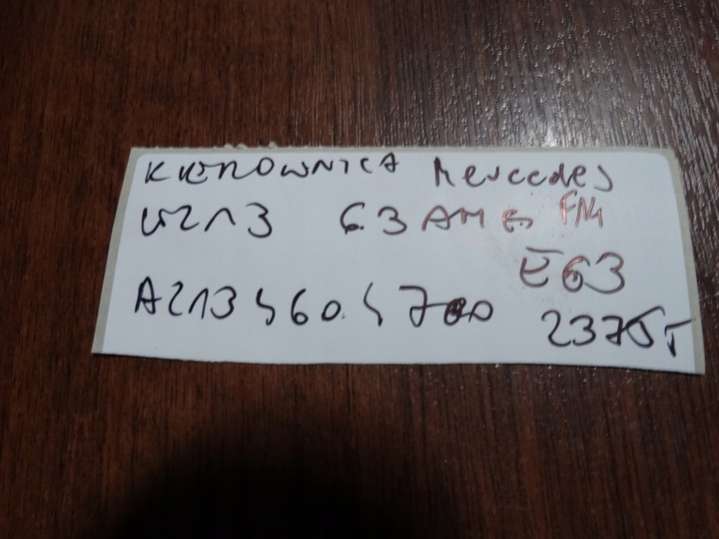 KIEROWNICA Mercedes
W213 63 AMG FN4
E63
A213 460 4700
2375T